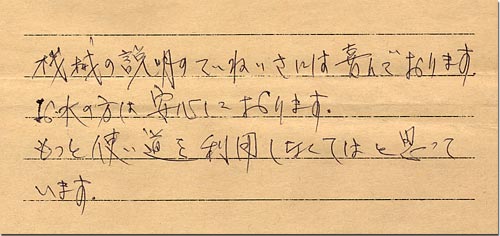 機械の説明のていねいさには喜んでおります.
お水の方は安心しております.
もっと使い道を利用しなくてはと思って
います.